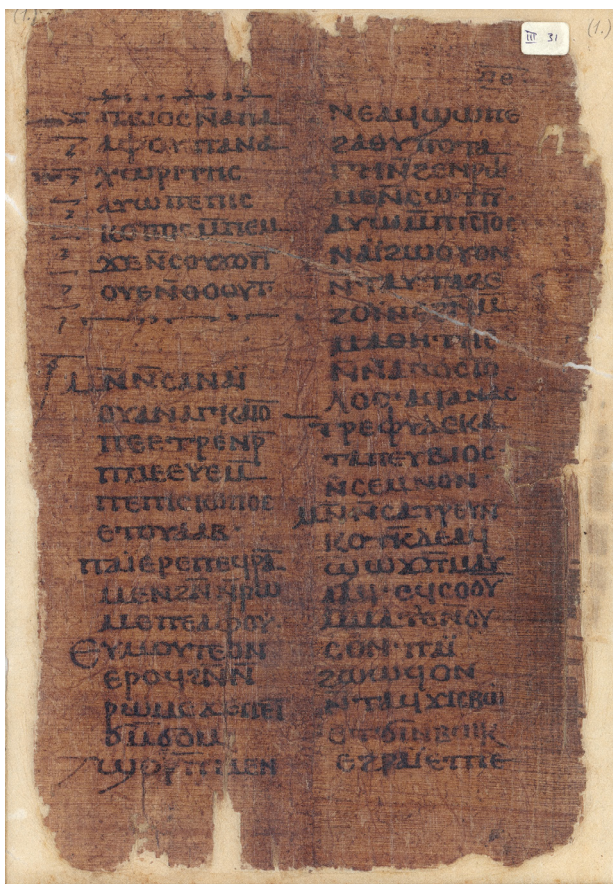 (1.)
III 31
(1.)
ⲡⲃⲓⲟⲥⲛⲁⲡⲁ
ⲁⲫⲟⲩⲡⲁⲛⲁ
ⲭⲱⲣⲓⲧⲏⲥ
ⲁⲩⲱⲡⲉⲡⲓⲥ
ⲕⲟⲡⲟⲥⲙ̄ⲡⲉⲙ
ϫⲉⲛ̄ⲥⲟⲩϫⲟⲩⲧ
ⲟⲩⲉⲛ̄ⲑⲟⲟⲩⲧ
ⲙⲛ̄ⲛ̄ⲥⲁⲛⲁⲓ̈
ⲟⲩⲁⲛⲁⲅⲕⲁⲓⲟ̄
ⲡⲉⲉⲧⲣⲉⲛⲣ̄
ⲡⲙⲉⲉⲩⲉⲙ̄
ⲡⲉⲡⲓⲥⲕⲟⲡⲟⲥ
ⲉⲧⲟⲩⲁⲁⲃ·
ⲡⲁⲓ̈ⲉⲣⲉⲡⲉϥⲣⲁ̄
ⲙⲉⲛϩⲛ̄ⲛ̄ⲣⲱ
ⲙⲉⲡⲉⲁⲫⲟⲩ
ⲉⲩⲙⲟⲩⲧⲉⲟⲛ
ⲉⲣⲟϥϩⲛ̄ⲛ̄
ⲣⲱⲙⲉϫⲉⲡⲉⲓ
ϭⲙ̄ϭⲟⲙ
ϣⲟⲣⲡ̄ⲙⲉⲛ
ⲛⲉⲁϥϣⲱⲡⲉ
ϩⲁⲑⲩⲡⲟⲧⲁ
ⲅⲏⲛ̄ϩⲉⲛⲣⲱ
ⲙⲉⲛ̄ⲥⲱⲧⲡ̄
ⲁⲩⲱⲙ̄ⲡⲓⲥⲧⲟⲥ
ⲛⲁⲓ̈ϩⲱⲟⲩⲟⲛ
ⲛ̄ⲧⲁⲩⲧⲁϩⲉ
ϩⲟⲓ̈ⲛⲉϩⲙ̄
ⲙⲁⲑⲏⲧⲏⲥ
ⲛ̄ⲛⲁⲡⲟⲥⲧⲟ
ⲗⲟⲥ·
ⲧⲁⲡⲉⲩⲃⲓⲟⲥ
ⲛ̄ⲥⲉⲙⲛⲟⲛ·
ⲙⲛ̄ⲛ̄ⲥⲁⲧⲣⲉⲩⲛ̄
ⲕⲟⲧⲕ̄ⲇⲉⲁϥ
ϣⲱϫⲡ̄ⲙⲁⲩ
ⲁⲁϥ·ⲉϥⲥⲟⲟⲩ
ⲙ̄ⲙⲁⲧⲉⲛ̄ⲟⲩ
ⲥⲟⲛ·ⲡⲁⲓ̈
ϩⲱⲱϥⲟⲛ
ⲉⲧϭⲓⲛⲃⲱⲕ
ⲉϩⲣⲁⲓ̈ⲉⲧⲡⲉ